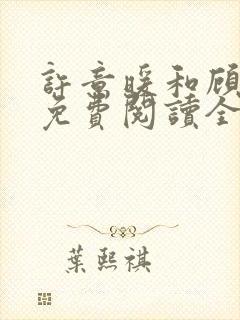 許意暖和顧
免費閱讀全
葉熙祺